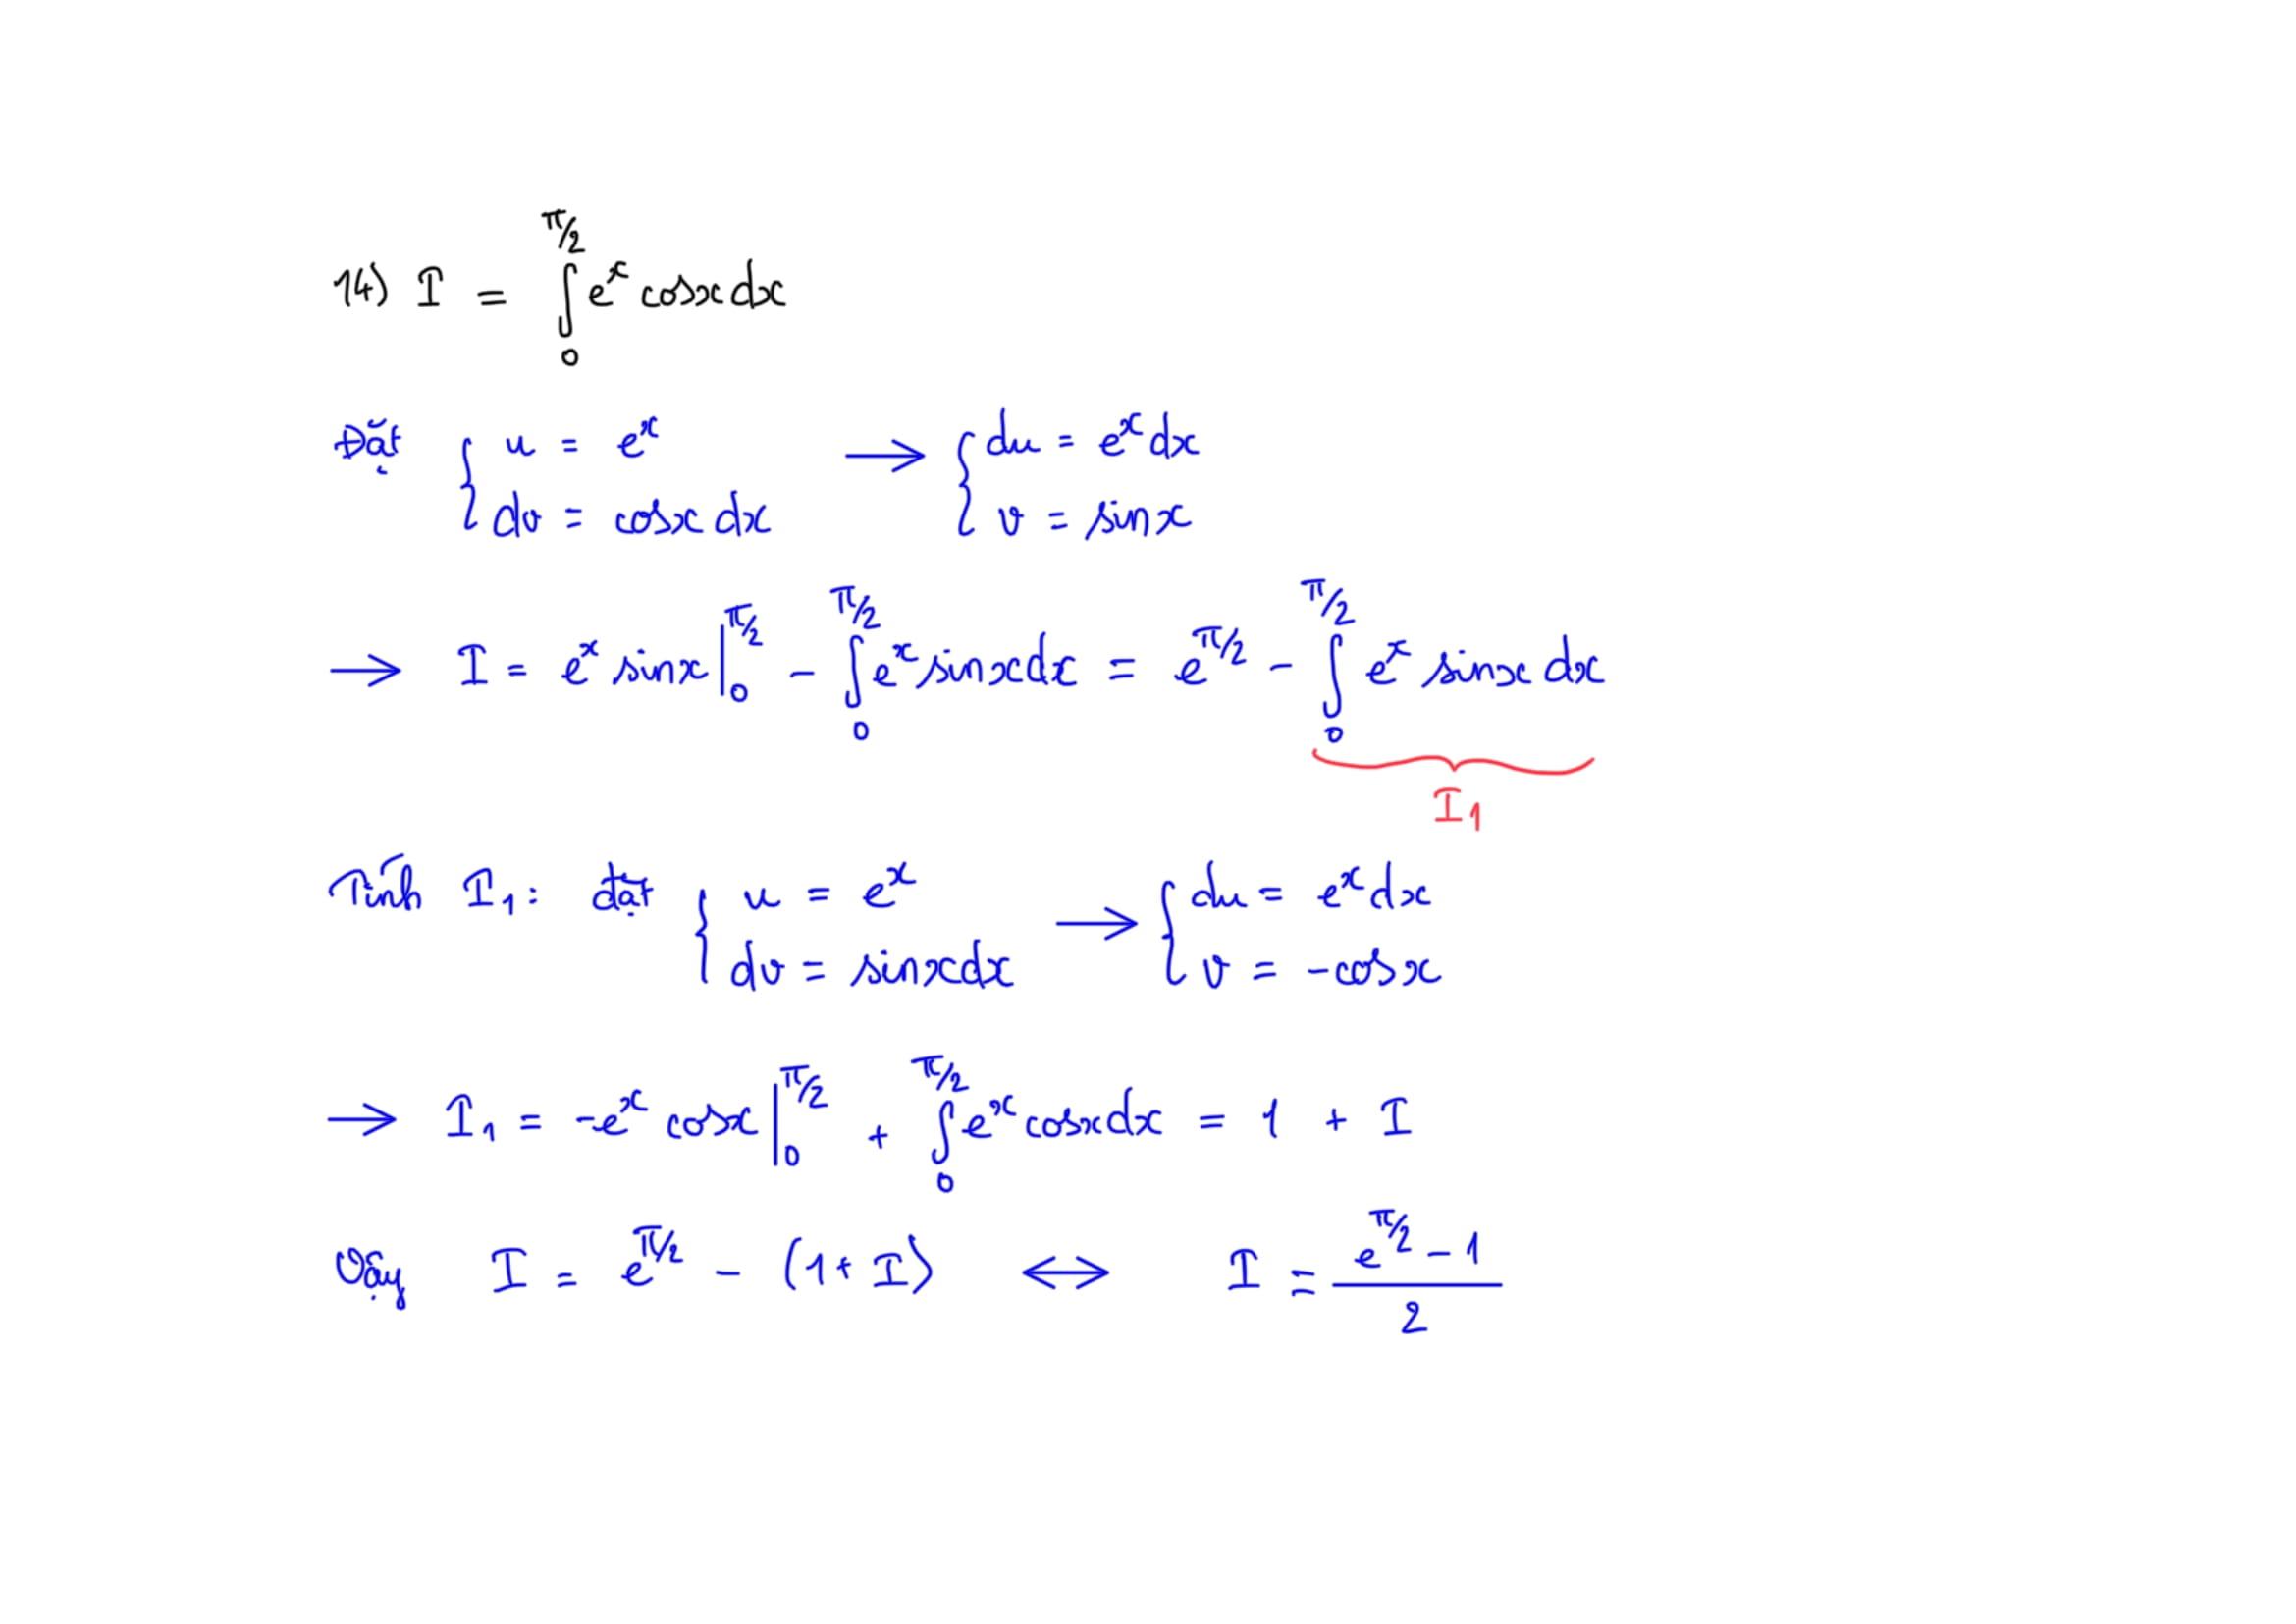 14) I = ∫₀^{π/2} eˣ cosx dx
Đặt { u = eˣ ; dv = cosx dx → { du = eˣdx ; v = sinx
→ I = eˣ sinx |₀^{π/2} - ∫₀^{π/2} eˣ sinx dx = e^{π/2} - ∫₀^{π/2} eˣ sinx dx
I₁
Tính I₁: đặt { u = eˣ ; dv = sinx dx → { du = eˣdx ; v = -cosx
→ I₁ = -eˣ cosx |₀^{π/2} + ∫₀^{π/2} eˣ cosx dx = 1 + I
Vậy I = e^{π/2} - (1 + I) ↔ I = (e^{π/2} - 1)/2